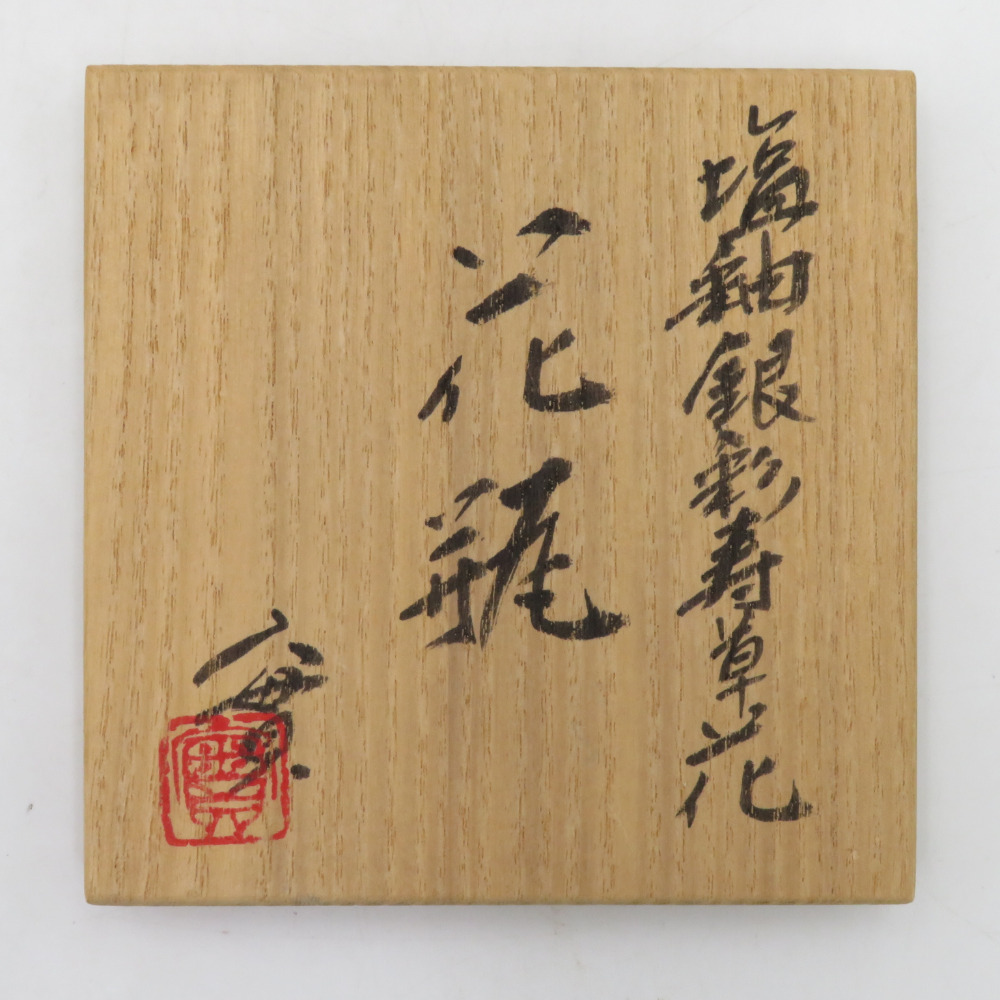 塩釉銀彩寿草花
花瓶
實